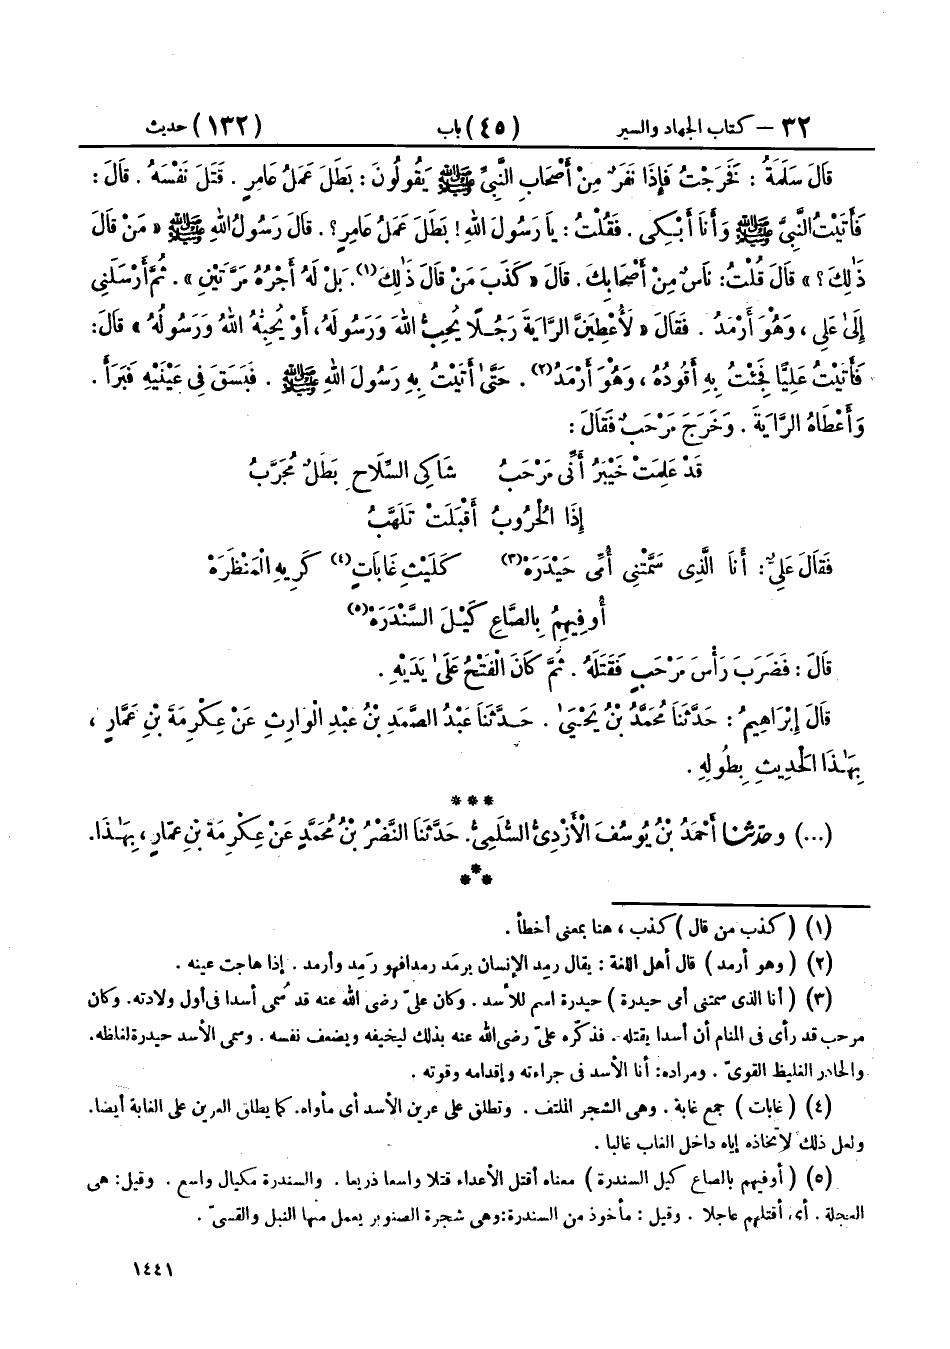 ٣٢ – كتاب الجهاد والسير (٤٥) باب (١٣٢) حديث
قَالَ سَلَمَةُ : فَخَرَجْتُ فَإِذَا نَفَرٌ مِنْ أَصْحَابِ النَّبِيِّ ﷺ يَقُولُونَ : بَطَلَ عَمَلُ عَامِرٍ . قَتَلَ نَفْسَهُ . قَالَ :
فَأَتَيْتُ النَّبِيَّ ﷺ وَأَنَا أَبْكِي . فَقُلْتُ : يَا رَسُولَ اللهِ ! بَطَلَ عَمَلُ عَامِرٍ ؟ . قَالَ رَسُولُ اللهِ ﷺ « مَنْ قَالَ
ذَٰلِكَ ؟ » قَالَ قُلْتُ : نَاسٌ مِنْ أَصْحَابِكَ . قَالَ « كَذَبَ مَنْ قَالَ ذَٰلِكَ(١) . بَلْ لَهُ أَجْرُهُ مَرَّتَيْنِ » . ثُمَّ أَرْسَلَنِي
إِلَىٰ عَلِيٍّ ، وَهُوَ أَرْمَدُ . فَقَالَ « لَأُعْطِيَنَّ الرَّايَةَ رَجُلًا يُحِبُّ اللهَ وَرَسُولَهُ ، أَوْ يُحِبُّهُ اللهُ وَرَسُولُهُ » قَالَ :
فَأَتَيْتُ عَلِيًّا فَجِئْتُ بِهِ أَقُودُهُ ، وَهُوَ أَرْمَدُ(٢) . حَتَّىٰ أَتَيْتُ بِهِ رَسُولَ اللهِ ﷺ . فَبَسَقَ فِي عَيْنَيْهِ فَبَرَأَ .
وَأَعْطَاهُ الرَّايَةَ . وَخَرَجَ مَرْحَبٌ فَقَالَ :
قَدْ عَلِمَتْ خَيْبَرُ أَنِّي مَرْحَبُ شَاكِي السِّلَاحِ بَطَلٌ مُجَرَّبُ
إِذَا الْحُرُوبُ أَقْبَلَتْ تَلَهَّبُ
فَقَالَ عَلِيٌّ : أَنَا الَّذِي سَمَّتْنِي أُمِّي حَيْدَرَهْ(٣) كَلَيْثِ غَابَاتٍ(٤) كَرِيهِ الْمَنْظَرَهْ
أُوفِيهِمُ بِالصَّاعِ كَيْلَ السَّنْدَرَهْ(٥)
قَالَ : فَضَرَبَ رَأْسَ مَرْحَبٍ فَقَتَلَهُ . ثُمَّ كَانَ الْفَتْحُ عَلَىٰ يَدَيْهِ .
قَالَ إِبْرَاهِيمُ : حَدَّثَنَا مُحَمَّدُ بْنُ يَحْيَىٰ . حَدَّثَنَا عَبْدُ الصَّمَدِ بْنُ عَبْدِ الْوَارِثِ عَنْ عِكْرِمَةَ بْنِ عَمَّارٍ ،
بِهَٰذَا الْحَدِيثِ بِطُولِهِ .
* * *
(...) وحَدَّثَنَا أَحْمَدُ بْنُ يُوسُفَ الْأَزْدِيُّ السُّلَمِيُّ . حَدَّثَنَا النَّضْرُ بْنُ مُحَمَّدٍ عَنْ عِكْرِمَةَ بْنِ عَمَّارٍ ، بِهَٰذَا .
* * *
(١) ( كذب من قال ) كذب ، هنا بمعنى أخطأ .
(٢) ( وهو أرمد ) قال أهل اللغة : يقال رمِد الإنسان يرمَد رمَدا فهو رَمِد وأرمد . إذا هاجت عينه .
(٣) ( أنا الذى سمتنى أمى حيدرة ) حيدرة اسم للأسد . وكان علىّ رضى الله عنه قد سُمى أسدا فى أول ولادته . وكان
مرحب قد رأى فى المنام أن أسدا يقتله . فذكّره علىّ رضى الله عنه بذلك ليخيفه ويضعف نفسه . وسمى الأسد حيدرة لغلظه .
والحادر الغليظ القوىّ . ومراده : أنا الأسد فى جراءته وإقدامه وقوته .
(٤) ( غابات ) جمع غابة . وهى الشجر الملتف . وتطلق على عرين الأسد أى مأواه . كما يطلق العرين على الغابة أيضا .
ولعل ذلك لاتخاذه إياه داخل الغاب غالبا .
(٥) ( أوفيهم بالصاع كيل السندرة ) معناه أقتل الأعداء قتلا واسعا ذريعا . والسندرة مكيال واسع . وقيل : هى
العجلة . أى أقتلهم عاجلا . وقيل : مأخوذ من السندرة : وهى شجرة الصنوبر يعمل منها النبل والقسىّ .
١٤٤١